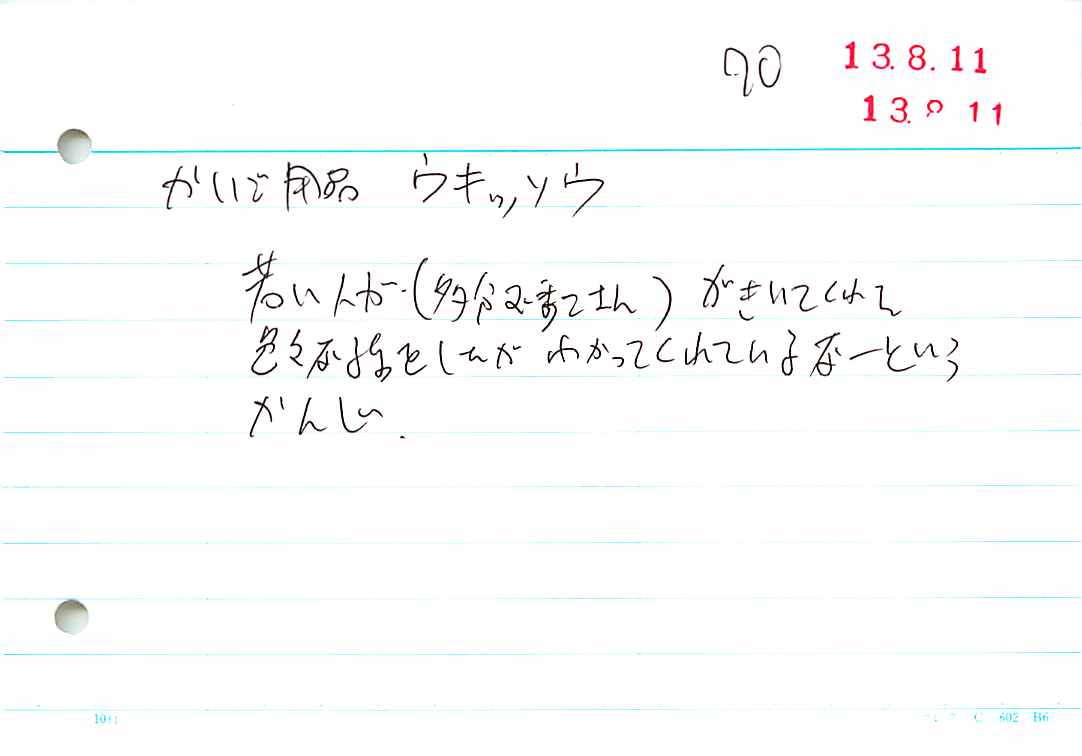 90 13.8.11
13.8 11
かいご用品 ウキッソウ
若い人が(多分 さん)がきいてくれて
色々な話をしたが わかってくれているなーという
かんじ.
602 B6